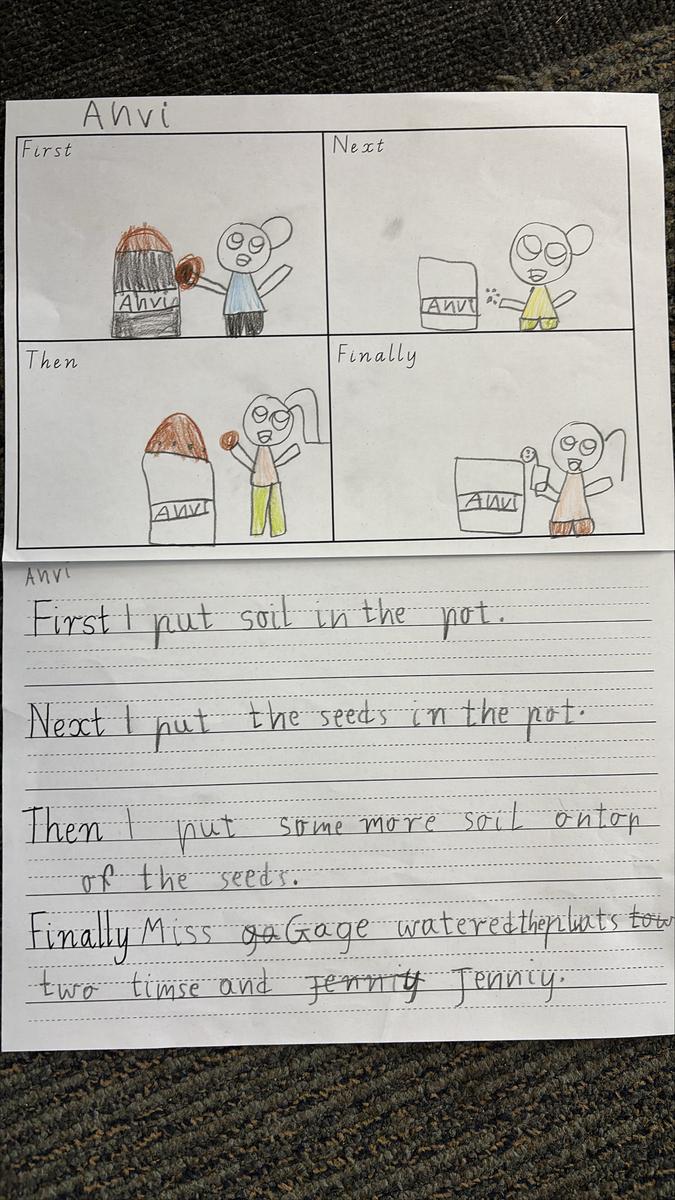 Anvi
First
Next
Anvi
Anvi
Then
Finally
Anvi
Anvi
Anvi
First I put soil in the pot.
Next I put the seeds in the pot.
Then I put some more soil ontop
of the seeds.
Finally Miss ga Gage wateredtheplants tow
two timse and Jenniy Jenniy.